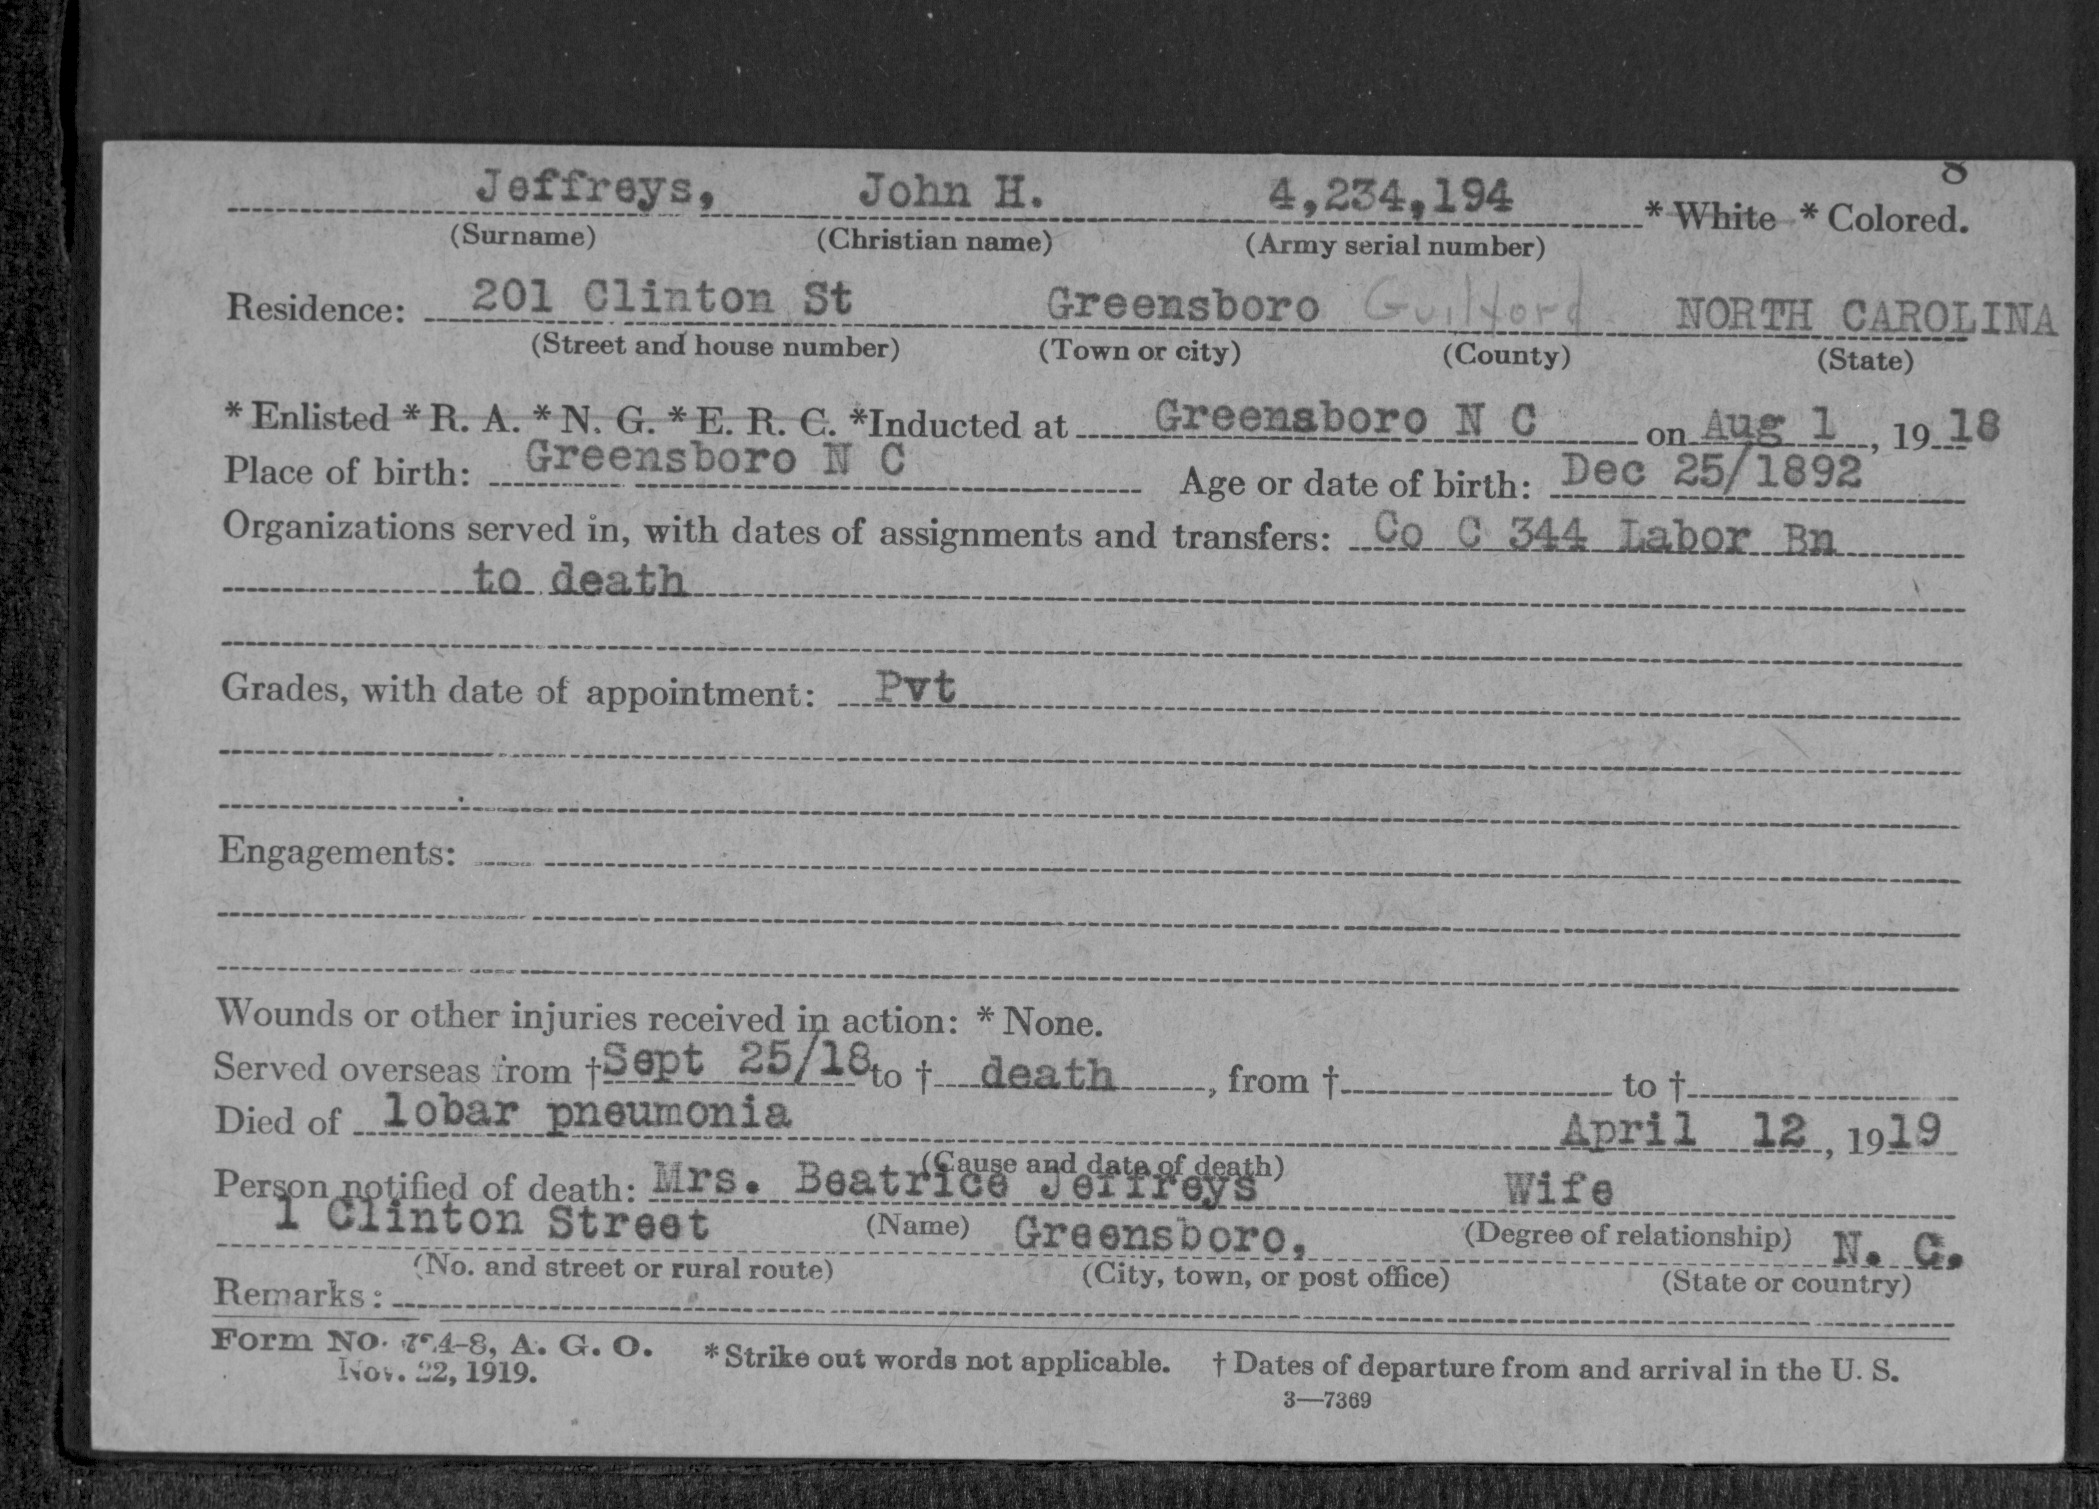 8
Jeffreys, John H. 4,234,194 * White * Colored.
(Surname) (Christian name) (Army serial number)
Residence: 201 Clinton St Greensboro Guilford NORTH CAROLINA
(Street and house number) (Town or city) (County) (State)
* Enlisted * R. A. * N. G. * E. R. C. *Inducted at Greensboro N C on Aug 1, 1918
Place of birth: Greensboro N C Age or date of birth: Dec 25/1892
Organizations served in, with dates of assignments and transfers: Co C 344 Labor Bn
to death
Grades, with date of appointment: Pvt
Engagements:
Wounds or other injuries received in action: * None.
Served overseas from † Sept 25/18 to † death, from † to †
Died of lobar pneumonia April 12, 1919
(Cause and date of death)
Person notified of death: Mrs. Beatrice Jeffreys Wife
(Name) (Degree of relationship)
1 Clinton Street Greensboro, N. C.
(No. and street or rural route) (City, town, or post office) (State or country)
Remarks:
Form No. 724-8, A. G. O. * Strike out words not applicable. † Dates of departure from and arrival in the U. S.
Nov. 22, 1919.
3—7369